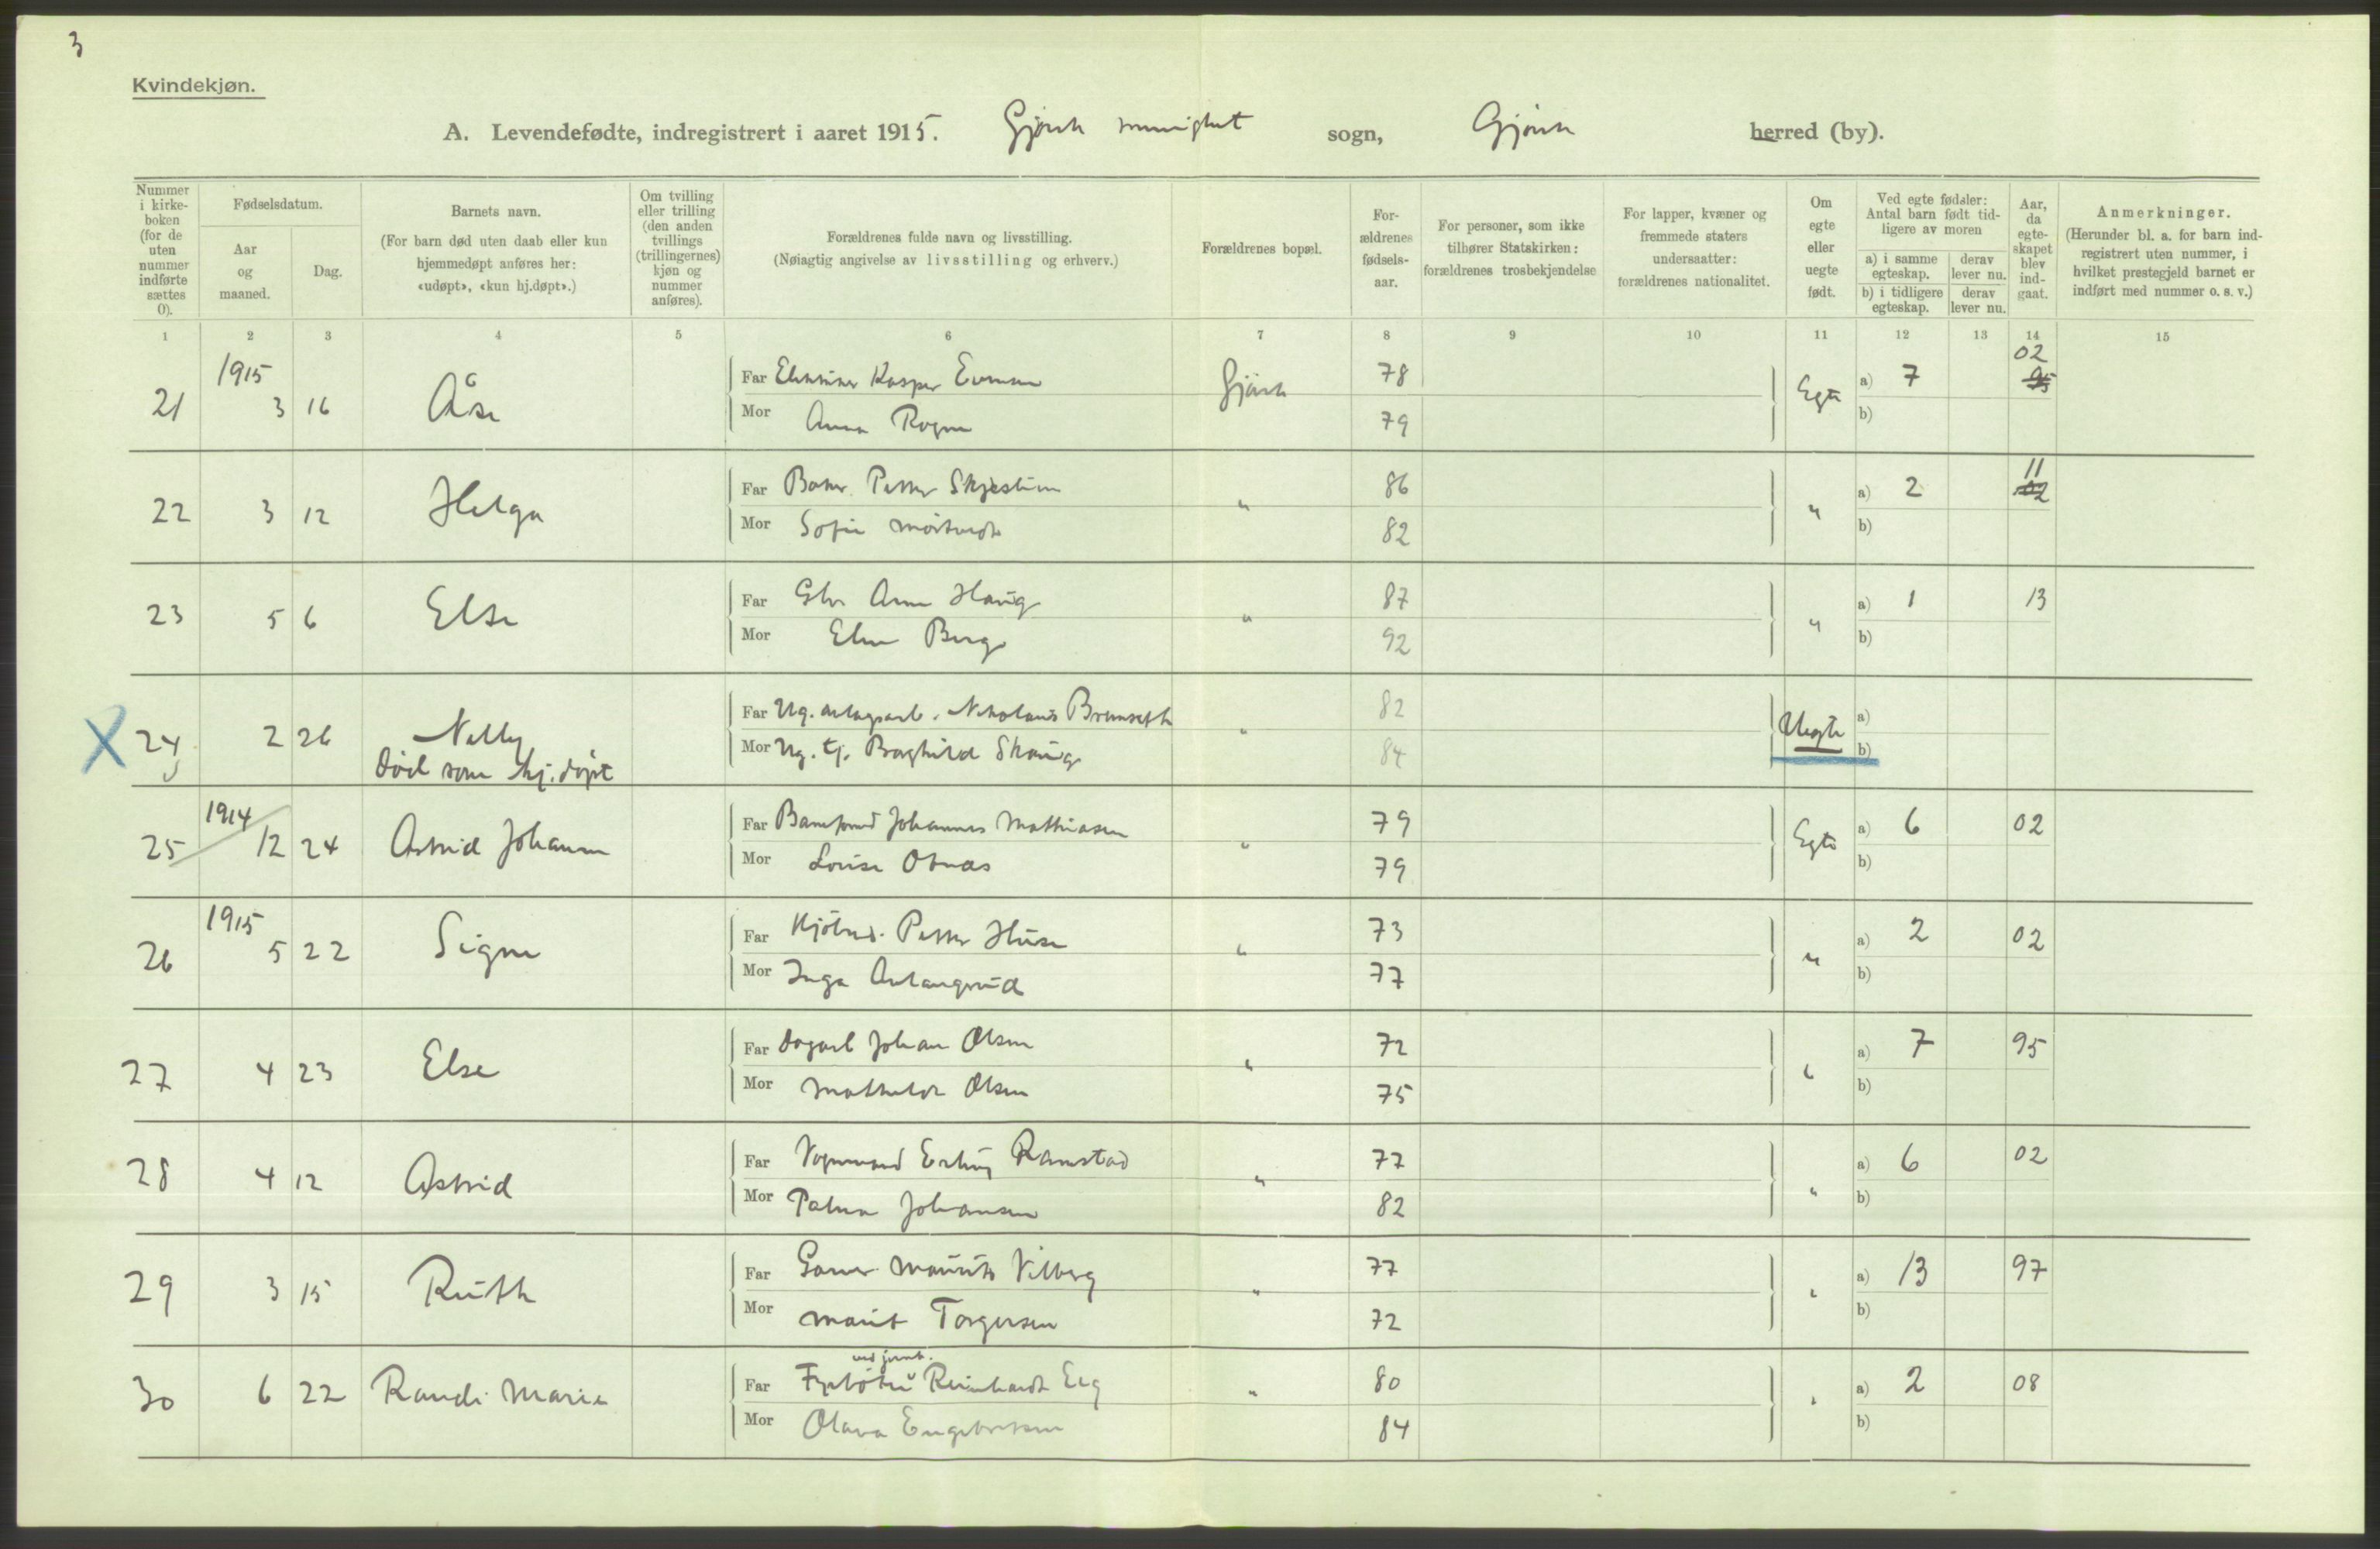 3
Kvindekjøn.
A. Levendefødte, indregistrert i aaret 1915. Gjøvik menighet sogn, Gjøvik herred (by).
Nummer i kirke-boken (for de uten nummer indførte sættes 0).
Fødselsdatum.
Aar og maaned.
Dag.
Barnets navn.
(For barn død uten daab eller kun hjemmedøpt anføres her: «udøpt», «kun hj.døpt».)
Om tvilling eller trilling (den anden tvillings (trillingernes) kjøn og nummer anføres).
Forældrenes fulde navn og livsstilling.
(Nøiagtig angivelse av livsstilling og erhverv.)
Forældrenes bopæl.
For-ældrenes fødsels-aar.
For personer, som ikke tilhører Statskirken: forældrenes trosbekjendelse
For lapper, kvæner og fremmede staters undersaatter: forældrenes nationalitet.
Om egte eller uegte født.
Ved egte fødsler: Antal barn født tid-ligere av moren
a) i samme egteskap.
derav lever nu.
b) i tidligere egteskap.
derav lever nu.
Aar, da egte-skapet blev ind-gaat.
Anmerkninger.
(Herunder bl. a. for barn ind-registrert uten nummer, i hvilket prestegjeld barnet er indført med nummer o. s. v.)
1 2 3 4 5 6 7 8 9 10 11 12 13 14 15
21 1915 3 16 Åse Far Kasper Evensen Gjøvik 78 Egte a) 7 02 95
Mor Anna Rogne 79 b)
22 3 12 Helga Far Baker Petter Skjeslien " 86 " a) 2 11 02
Mor Sofie 82 b)
23 5 6 Else Far Arne Haug " 87 " a) 1 13
Mor Berg 92 b)
X 24 2 26 Nelly Far Ug. anlagsarb. Nikolaus Brenseth " 82 Uegte a)
død som hj.døpt Mor Ug. tj. Borghild Skaug 84 b)
25 1914 12 24 Astrid Johanne Far Johannes Mathiasen " 79 Egte a) 6 02
Mor Lovise 79 b)
26 1915 5 22 Signe Far Petter Huse " 73 " a) 2 02
Mor Inga 77 b)
27 4 23 Else Far Dagarb Johan Olsen " 72 " a) 7 95
Mor Mathilde Olsen 75 b)
28 4 12 Astrid Far Vognmand Erling Ramstad " 77 " a) 6 02
Mor Palma Johansen 82 b)
29 3 15 Ruth Far Garver Mauritz Vilberg " 77 " a) 13 97
Mor Marit Torgersen 72 b)
30 6 22 Randi Marie Far Fyrbøter ved jernb. Reinhardt Eeg " 80 " a) 2 08
Mor Olava Engebretsen 84 b)